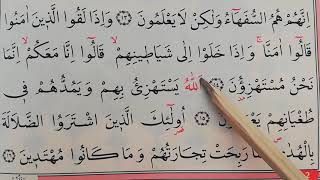 اِنَّهُمْ هُمُ السُّفَهَٓاءُ وَلٰكِنْ لَا يَعْلَمُونَ ﴿١٣﴾ وَاِذَا لَقُوا الَّذٖينَ اٰمَنُوا
قَالُٓوا اٰمَنَّا وَاِذَا خَلَوْا اِلٰى شَيَاطٖينِهِمْ قَالُٓوا اِنَّا مَعَكُمْ اِنَّمَا
نَحْنُ مُسْتَهْزِؤُ۫نَ ﴿١٤﴾ اَللّٰهُ يَسْتَهْزِئُ بِهِمْ وَيَمُدُّهُمْ فٖى
طُغْيَانِهِمْ يَعْمَهُونَ ﴿١٥﴾ اُو۬لٰٓئِكَ الَّذٖينَ اشْتَرَوُا الضَّلَالَةَ
بِالْهُدٰى فَمَا رَبِحَتْ تِجَارَتُهُمْ وَمَا كَانُوا مُهْتَدٖينَ ﴿١٦﴾
2